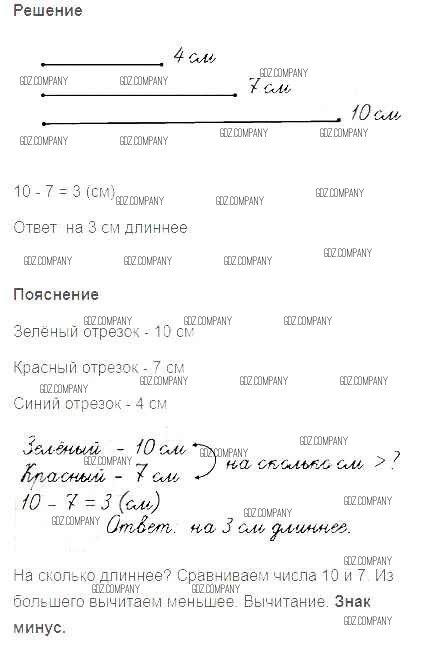 Решение
4 см
GDZ.COMPANY GDZ.COMPANY GDZ.COMPANY
7 см
10 см
GDZ.COMPANY GDZ.COMPANY GDZ.COMPANY GDZ.COMPANY
10 - 7 = 3 (см)
GDZ.COMPANY GDZ.COMPANY GDZ.COMPANY
Ответ на 3 см длиннее
GDZ.COMPANY GDZ.COMPANY GDZ.COMPANY GDZ.COMPANY
Пояснение
GDZ.COMPANY GDZ.COMPANY GDZ.COMPANY
Зелёный отрезок - 10 см
Красный отрезок - 7 см
GDZ.COMPANY GDZ.COMPANY GDZ.COMPANY GDZ.COMPANY
Синий отрезок - 4 см
Зелёный - 10 см
GDZ.COMPANY GDZ.COMPANY GDZ.COMPANY
на сколько см > ?
Красный - 7 см
10 - 7 = 3 (см)
GDZ.COMPANY GDZ.COMPANY GDZ.COMPANY GDZ.COMPANY
Ответ: на 3 см длиннее.
GDZ.COMPANY
На сколько длиннее? Сравниваем числа 10 и 7. Из
GDZ.COMPANY GDZ.COMPANY GDZ.COMPANY
большего вычитаем меньшее. Вычитание. Знак
GDZ.COMPANY
минус.